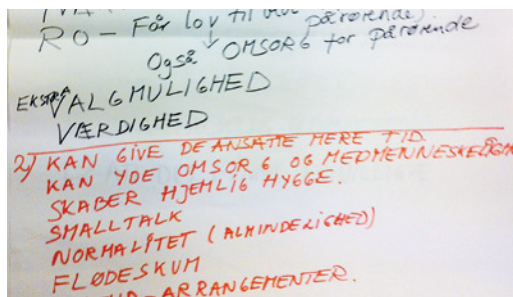 RO - Får lov til pårørende)
Også OMSORG for pårørende
EKSTRA VALGMULIGHED
VÆRDIGHED
2) KAN GIVE DE ANSATTE MERE TID.
KAN YDE OMSORG OG MEDMENNESKELIGH
SKABER HJEMLIG HYGGE.
SMALLTALK
NORMALITET (ALMINDELIGHED)
FLØDESKUM
ARRANGEMENTER.